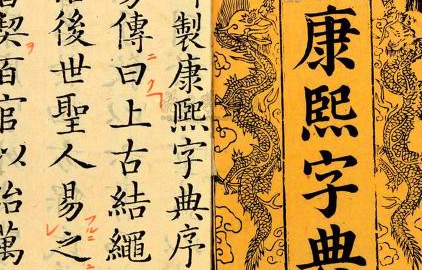 康熙字典
製康熙字典序
傳曰上古結繩
後世聖人易之
契百官以治萬